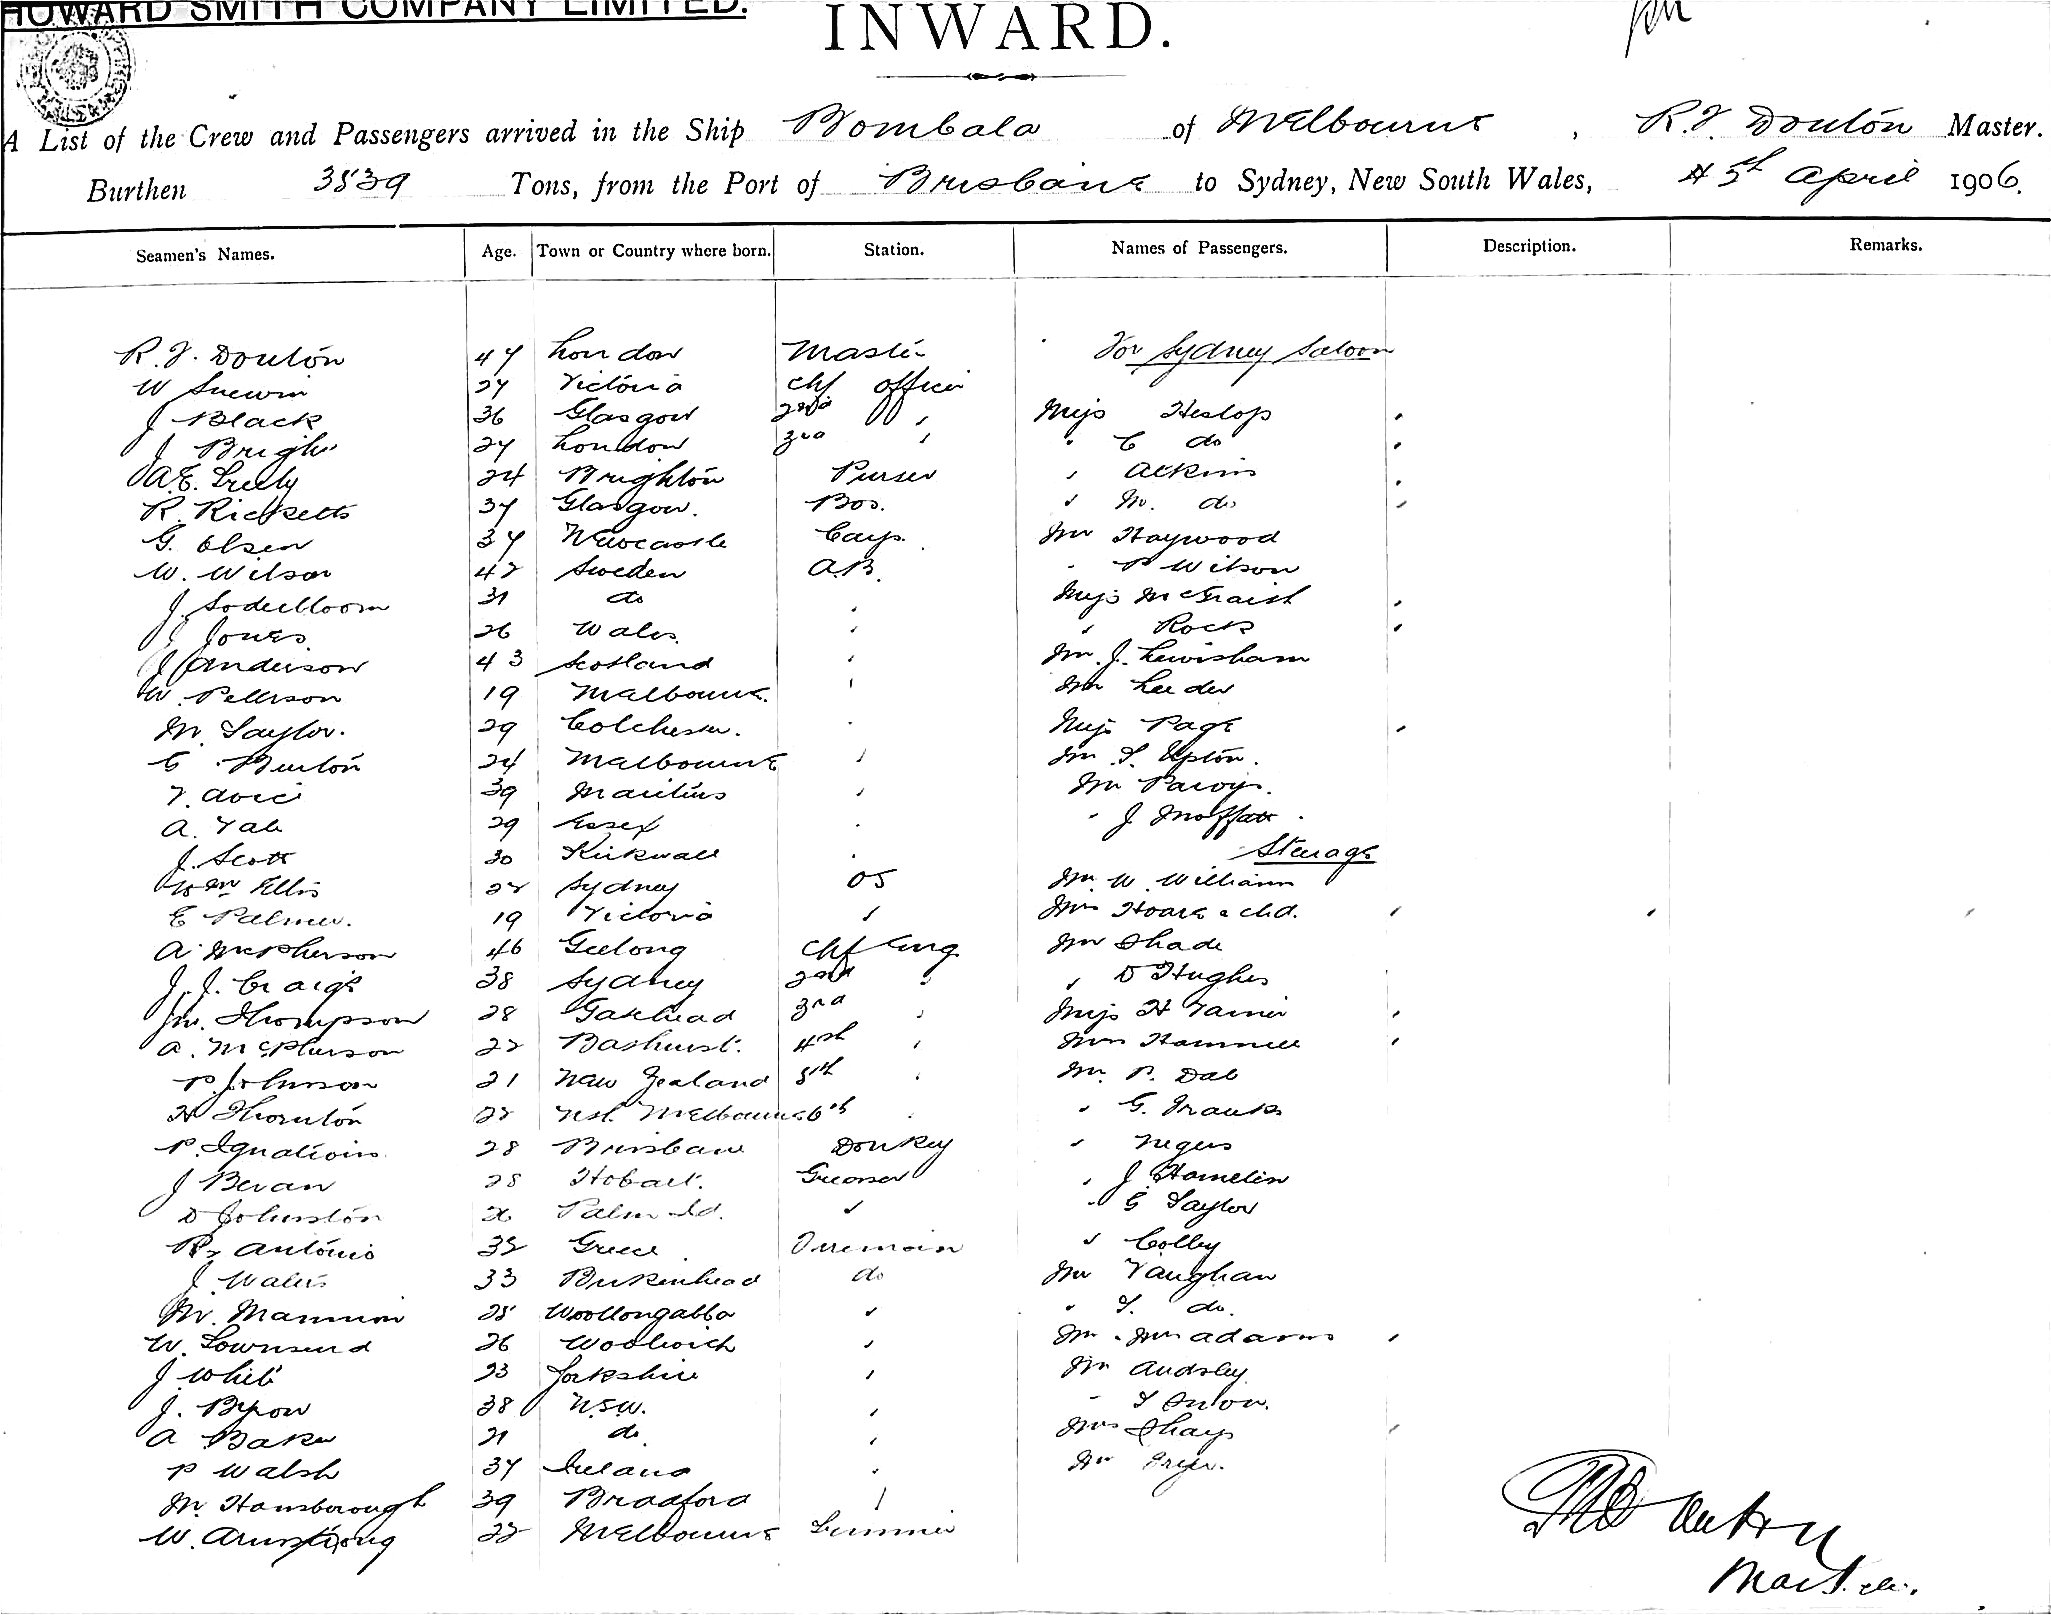 HOWARD SMITH COMPANY LIMITED.
INWARD.
A List of the Crew and Passengers arrived in the Ship Bombala of Melbourne, R.J. Douton Master.
Burthen 3539 Tons, from the Port of Brisbane to Sydney, New South Wales, 5th April 1906.
Seamen's Names. Age. Town or Country where born. Station. Names of Passengers. Description. Remarks.
R.J. Douton 47 London Master For Sydney Saloon
W 27 Victoria Chf Officer
J Black 36 Glasgow 2nd " Miss Heslop
J Bright 27 London 3rd " " C do
A.E. 24 Brighton Purser " Atkins
R. Ricketts 37 Glasgow. Bos. " M. do
G. Olsen 37 Newcastle Carp. Mr Haywood
W. Wilson 42 Sweden A.B. " P Wilson
J. Soderbloom 31 do " Miss
J Jones 26 Wales. " " Rock
J Anderson 43 Scotland " Mr. J. Lewisham
W. Petterson 19 Melbourne. " Mr Leeder
M. Taylor. 29 Colchester. " Miss Page
C Burton 24 Melbourne " Mr. T. Upton.
39 Mauritius " Mr
A. 29 Essex " " J Moffatt
J. Scott 30 Kirkwall " Steerage
Wm Ellis 22 Sydney OS Mr. W. William
E Palmer. 19 Victoria " Mrs Hoare & chd.
A McPherson 46 Geelong Chf Eng Mr Shade
J.J. Craig 38 Sydney 2nd " " D Hughes
Jn. Thompson 28 Gateshead 3rd " Miss H
A. McPherson 22 Bathurst. 4th " Mrs Hammell
P Johnson 21 New Zealand 5th " Mr. P.
H Thornton 22 Nth. Melbourne 6th " " G. Franks
P. 28 Brisbane Donkey "
J Bevan 28 Hobart. Greaser " J Hamelin
D Johnston 26 Palm Id. " " G Taylor
Antonio 32 Greece Fireman " Colley
J. 33 Birkenhead do Mr Vaughan
M. Mannion 25 Woollongabba " " T. do.
W. Townsend 26 Woolwich " Mr & Mrs Adams
J White 23 Yorkshire " Mr Audsley
J. Byron 38 N.S.W. "
A Baker 21 do. " Mrs
P Walsh 37 Ireland " Mr
M. Hansborough 39 Bradford "
W. Armstrong 22 Melbourne Trimmer
R.J. Douton
Master.